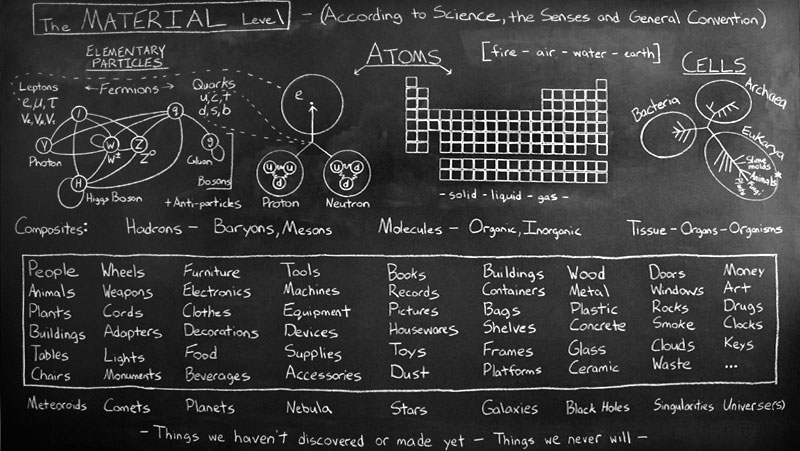 The MATERIAL Level - (According to Science, the Senses and General Convention)
ELEMENTARY PARTICLES
Leptons
e, μ, τ
νe νμ ντ
← Fermions →
Quarks
u, c, t
d, s, b
l
q
γ
Photon
W
W±
Z
Z°
g
Gluon
H
Higgs Boson
Bosons
+Anti-particles
e
u u
d
Proton
u d
d
Neutron
ATOMS
[fire - air - water - earth]
- solid - liquid - gas -
CELLS
Bacteria
Archaea
Eukarya
Slime molds
Animals*
Fungi
Plants
Composites: Hadrons - Baryons, Mesons Molecules - Organic, Inorganic Tissue - Organs - Organisms
People Wheels Furniture Tools Books Buildings Wood Doors Money
Animals Weapons Electronics Machines Records Containers Metal Windows Art
Plants Cords Clothes Equipment Pictures Bags Plastic Rocks Drugs
Buildings Adapters Decorations Devices Housewares Shelves Concrete Smoke Clocks
Tables Lights Food Supplies Toys Frames Glass Clouds Keys
Chairs Monuments Beverages Accessories Dust Platforms Ceramic Waste ...
Meteoroids Comets Planets Nebula Stars Galaxies Black Holes Singularities Universe(s)
- Things we haven't discovered or made yet - Things we never will -